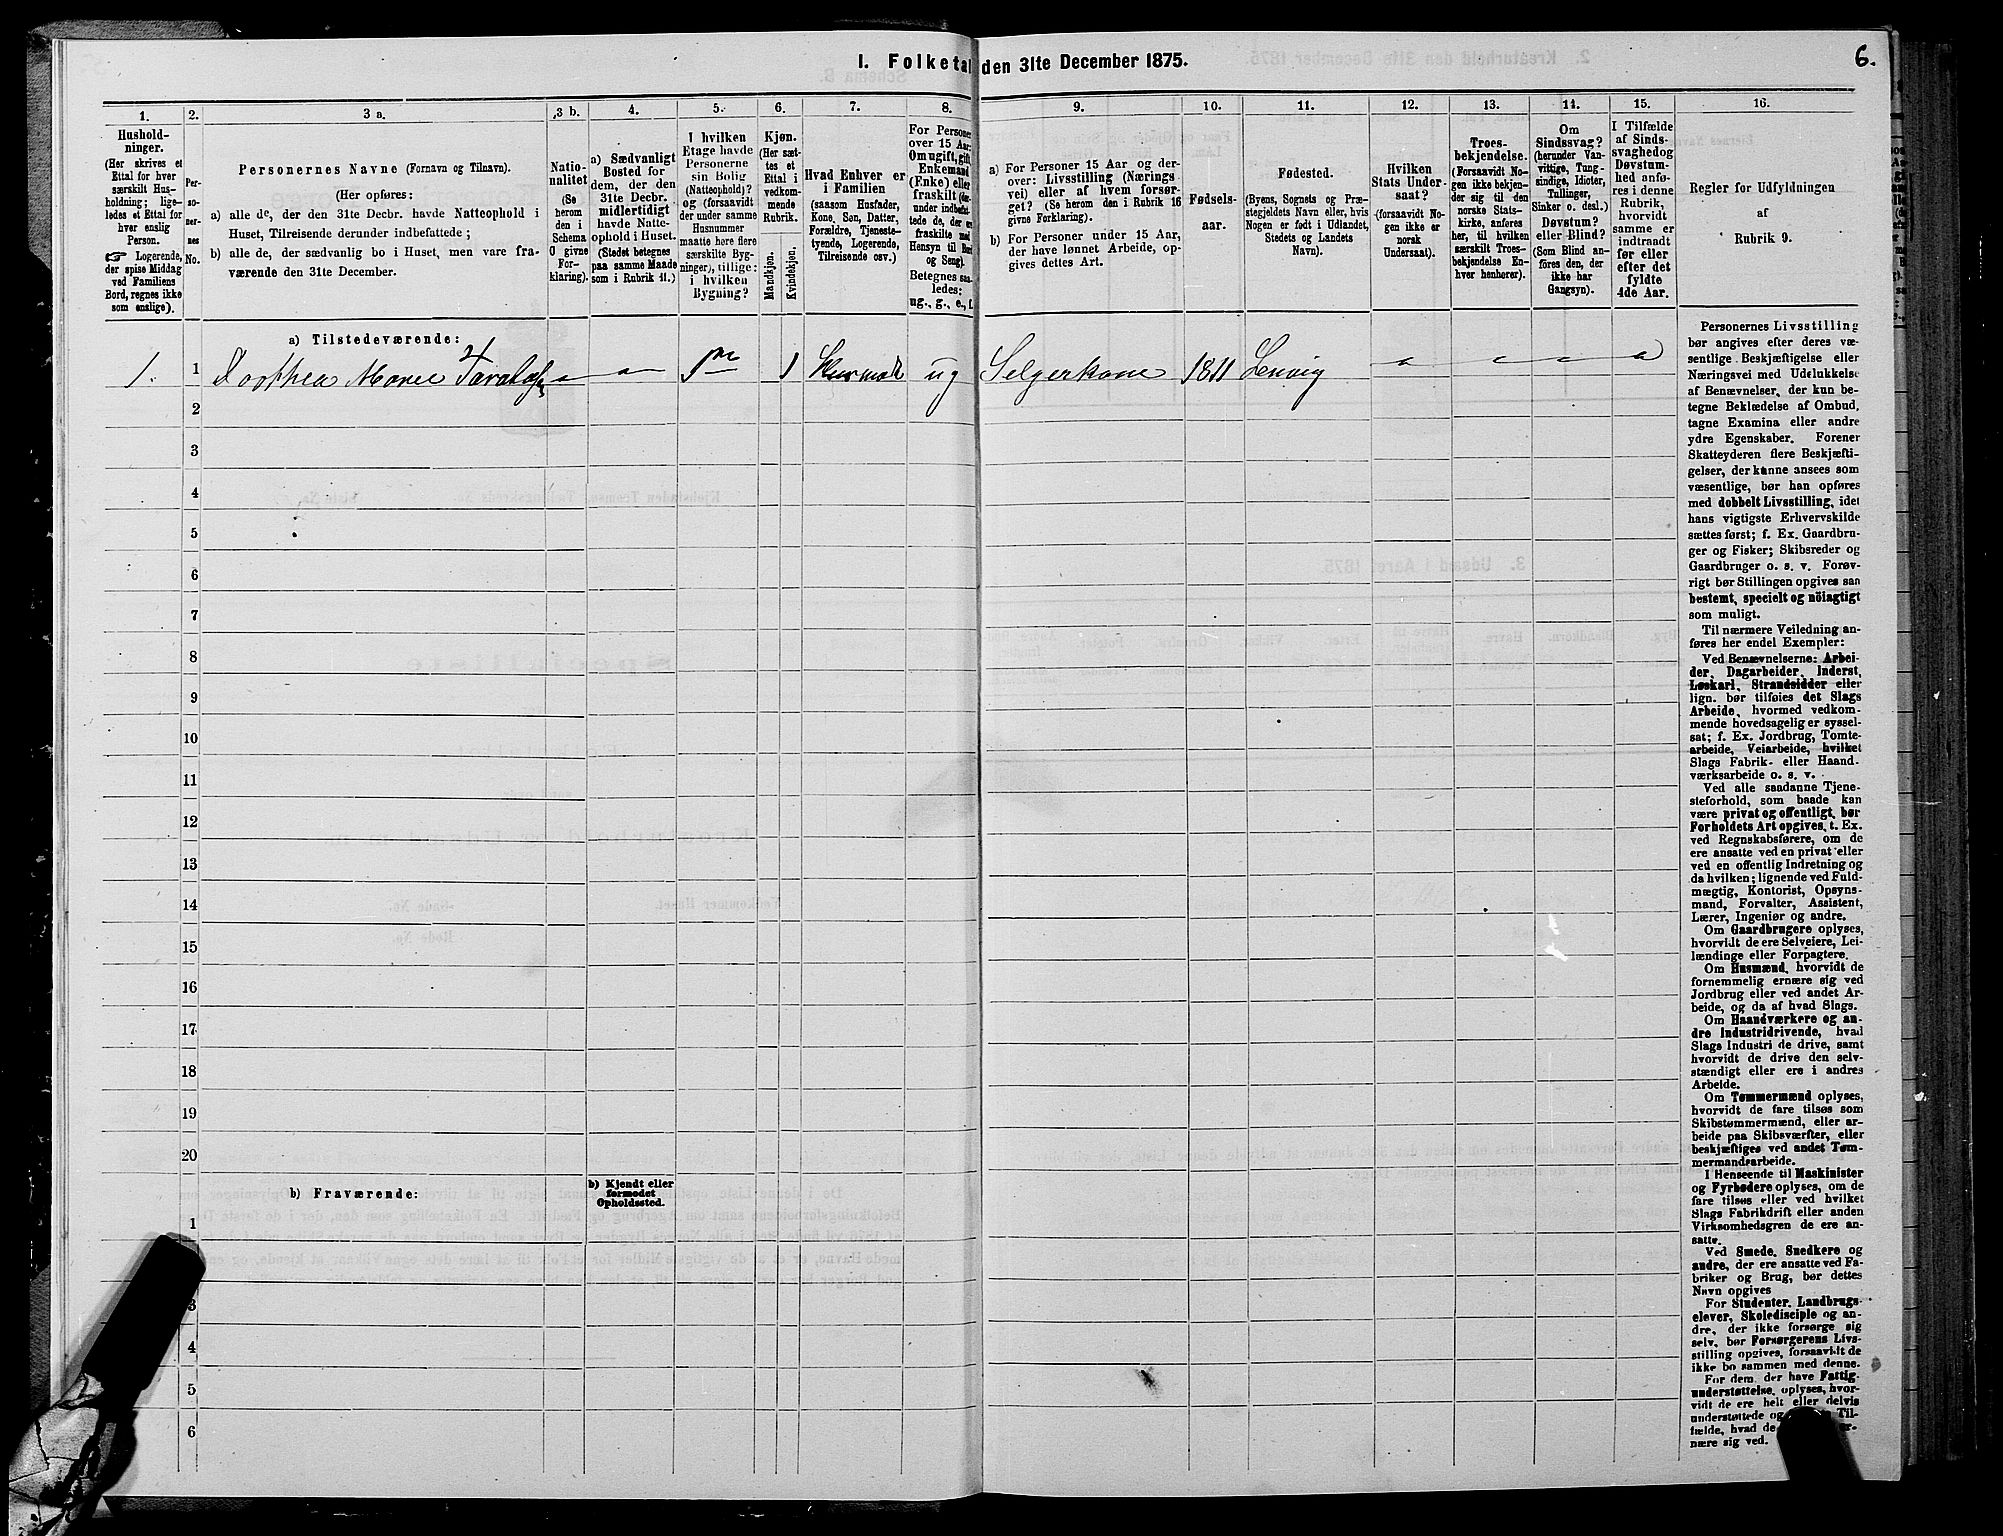 I. Folketal den 31te December 1875.
6.
1.
Hushold-
ninger.
(Her skrives et
Ettal for hver
særskilt Hus-
holdning; lige-
ledes et Ettal for
hver enslig
Person.
☞ Logerende,
der spise Middag
ved Familiens
Bord, regnes ikke
som enslige).
2.
Per-
so-
ner-
nes
No.
3 a.
Personernes Navne (Fornavn og Tilnavn).
(Her opføres:
a) alle de, der den 31te Decbr. havde Natteophold i
Huset, Tilreisende derunder indbefattede;
b) alle de, der sædvanlig bo i Huset, men vare fra-
værende den 31te December.
3 b.
Natio-
nalitet
(Se
herom
den i
Schema
O givne
For-
klaring).
4.
a) Sædvanligt
Bosted for
dem, der den
31te Decbr.
midlertidigt
havde Natte-
ophold i Huset.
(Stedet betegnes
paa samme Maade
som i Rubrik 11.)
5.
I hvilken
Etage havde
Personerne
sin Bolig
(Natteophold)?
og (forsaavidt
der under samme
Husnummer
maatte høre flere
særskilte Byg-
ninger), tillige:
i hvilken
Bygning?
6.
Kjøn.
(Her sæt-
tes et
Ettal i
vedkom-
mende
Rubrik.
Mandkjøn.
Kvindekjøn.
7.
Hvad Enhver er
i Familien
(saasom Husfader,
Kone, Søn, Datter,
Forældre, Tjeneste-
tyende, Logerende,
Tilreisende osv.)
8.
For Personer
over 15 Aar:
Om ugift, gift,
Enkemand
(Enke) eller
fraskilt
under indbefat-
tede de, der er
fraskilte med
Hensyn til Bord
og Seng).
Betegnes saa-
ledes:
ug., g., e., f.
9.
a) For Personer 15 Aar og der-
over: Livsstilling (Nærings
vei) eller af hvem forsør-
get? (Se herom den i Rubrik 16
givne Forklaring).
b) For Personer under 15 Aar,
der have lønnet Arbeide, op-
gives dettes Art.
10.
Fødsels-
aar.
11.
Fødested.
(Byens, Sognets og Præ-
stegjeldets Navn eller, hvis
Nogen er født i Udlandet,
Stedets og Landets
Navn).
12.
Hvilken
Stats Under-
saat?
(forsaavidt No-
gen ikke er
norsk
Undersaat).
13.
Troes-
bekjendelse.
(Forsaavidt No-
gen ikke bekjen-
der sig til den
norske Stats-
kirke, anføres
her, til hvilken
særskilt Troes-
bekjendelse En-
hver henhører).
14.
Om
Sindssvag?
(herunder Van-
vittige, Tung-
sindige, Idioter,
Tullinger,
Sinker o. desl.)
Døvstum?
eller Blind?
(Som Blind an-
føres den, der
ikke har
Gangsyn).
15.
I Tilfælde
af Sinds-
svaghed og
Døvstum-
hed anfø-
res i denne
Rubrik,
hvorvidt
samme er
indtraadt
før eller
efter det
fyldte
4de Aar.
16.
Regler for Udfyldningen
af
Rubrik 9.
a) Tilstedeværende:
1. 1 Dorthea Maree 1 ug Selgerkone 1811 Lenvig
2
3
4
5
6
7
8
9
10
11
12
13
14
15
16
17
18
19
20
b) Fraværende:
b) Kjendt eller
formodet
Opholdssted.
1
3
4
5
6
Personernes Livsstilling
bør angives efter deres væ-
sentlige Beskjæftigelse eller
Næringsvei med Udelukkelse
af Benævnelser, der kun be-
tegne Beklædelse af Ombud,
tagne Examina eller andre
ydre Egenskaber. Forener
Skatteyderen flere Beskjæfti-
gelser, der kunne ansees som
væsentlige, bør han opføres
med dobbelt Livsstilling, idet
hans vigtigste Erhvervskilde
sættes først; f. Ex. Gaardbru-
ger og Fisker; Skibsreder og
Gaardbruger o. s. v. Forøv-
rigt bør Stillingen opgives saa
bestemt, specielt og nöiagtigt
som muligt.
Til nærmere Veiledning an-
føres her endel Exempler:
Ved Benævnelserne: Arbei-
der, Dagarbeider, Inderst,
Løskarl, Strandsidder eller
lign. bør tilføies det Slags
Arbeide, hvormed vedkom-
mende hovedsagelig er syssel-
sat; f. Ex. Jordbrug, Tomte-
arbeide, Veiarbeide, hvilket
Slags Fabrik- eller Haand-
værksarbeide o. s. v.
Ved alle saadanne Tjene-
steforhold, som baade kan
være privat og offentligt, bør
Forholdets Art opgives, t. Ex.
ved Regnskabsførere, om de
ere ansatte ved en privat eller
ved en offentlig Indretning og
da hvilken; lignende ved Fuld-
mægtig, Kontorist, Opsyns-
mand, Forvalter, Assistent,
Lærer, Ingeniør og andre.
Om Gaardbrugere oplyses,
hvorvidt de ere Selveiere, Lei-
lændinge eller Forpagtere.
Om Husmænd, hvorvidt de
fornemmelig ernære sig ved
Jordbrug eller ved andet Ar-
beide, og da af hvad Slags.
Om Haandværkere og an-
dre Industridrivende, hvad
Slags Industri de drive, samt
hvorvidt de drive den selv-
stændigt eller ere i andres
Arbeide.
Om Tømmermænd oplyses,
hvorvidt de fare tilsøs som
Skibstømmermænd, eller ar-
beide paa Skibsværfter, eller
beskjæftiges ved andet Tøm-
mermandsarbeide.
I Henseende til Maskinister
og Fyrbødere oplyses, om de
fare tilsøs eller ved hvilket
Slags Fabrikdrift eller anden
Virksomhedsgren de ere an-
satte.
Ved Smede, Snedkere og
andre, der ere ansatte ved Fa-
briker og Brug, bør dettes
Navn opgives
For Studenter, Landbrugs-
elever, Skoledisciple og an-
dre, der ikke forsørge sig
selv, bør Forsørgerens Livs-
stilling opgives, forsaavidt de
ikke bo sammen med denne.
For dem, der have Fattig-
understøttelse, oplyses, hvor-
vidt de ere helt eller delvis
understøttede og Til-
fælde, hvad de er-
nære sig ved.